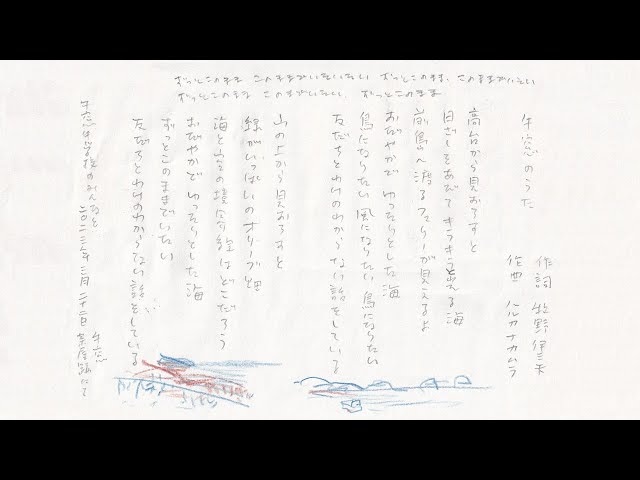 牛窓のうた
作詞 牧野伊三夫
作曲 ハルカナカムラ
高台から見おろすと
日ざしをあびて きらきら光る海
前島へ渡るフェリーが見えるよ
おだやかで ゆったりとした海
鳥になりたい 風になりたい 鳥になりたい
友だちとわけのわからない話をしている
山の上から見おろすと
緑がいっぱいのオリーブ畑
海と空の境界線はどこだろう
おだやかで ゆったりとした海
ずっとこのままでいたい
友だちとわけのわからない話をしている
ずっとこのまま このままでいたい ずっとこのまま、このままでいたい
ずっとこのまま このままでいたい、ずっとこのまま
牛窓中学校のみんなと
二〇二三年三月二十二日 牛窓
茶屋跡にて